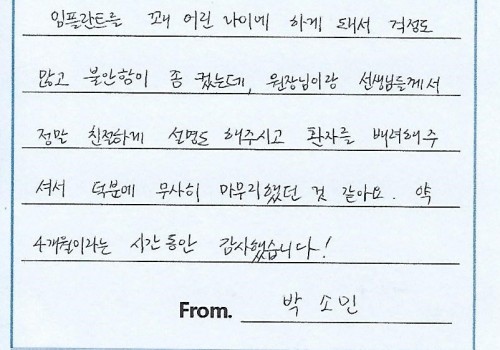 임플란트를 꽤 어린 나이에 하게 돼서 걱정도
많고 불안함이 좀 컸는데, 원장님이랑 선생님들께서
정말 친절하게 설명도 해주시고 환자를 배려해주
셔서 덕분에 무사히 마무리했던 것 같아요. 약
4개월이라는 시간동안 감사했습니다!
From. 박소민